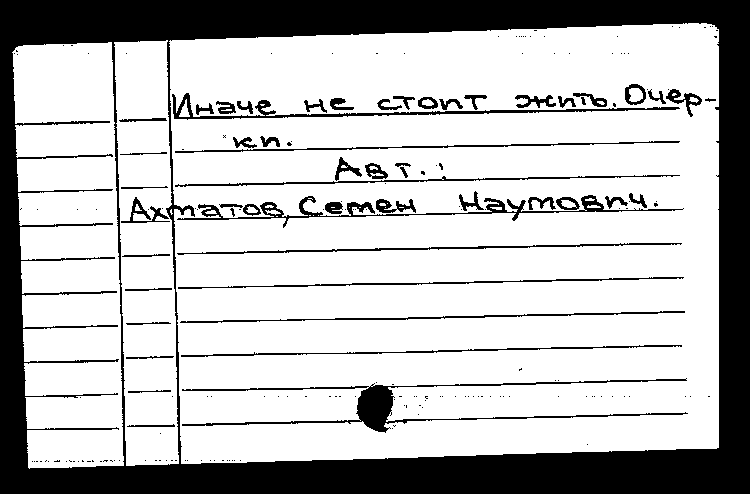 Иначе не стоит жить. Очер-
ки.
Авт.:
Ахматов, Семен Наумович.